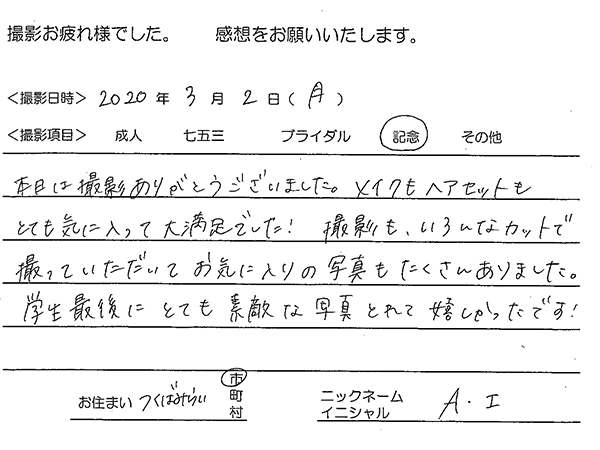 撮影お疲れ様でした。 感想をお願いいたします。
<撮影日時> 2020 年 3 月 2 日 ( 月 )
<撮影項目> 成人 七五三 ブライダル 記念 その他
本日は撮影ありがとうございました。メイクもヘアセットも
とても気に入って大満足でした! 撮影も、いろんなカットで
撮っていただいてお気に入りの写真もたくさんありました。
学生最後にとても素敵な写真とれて嬉しかったです!
お住まい つくばみらい 市 町 村 ニックネーム イニシャル A.I